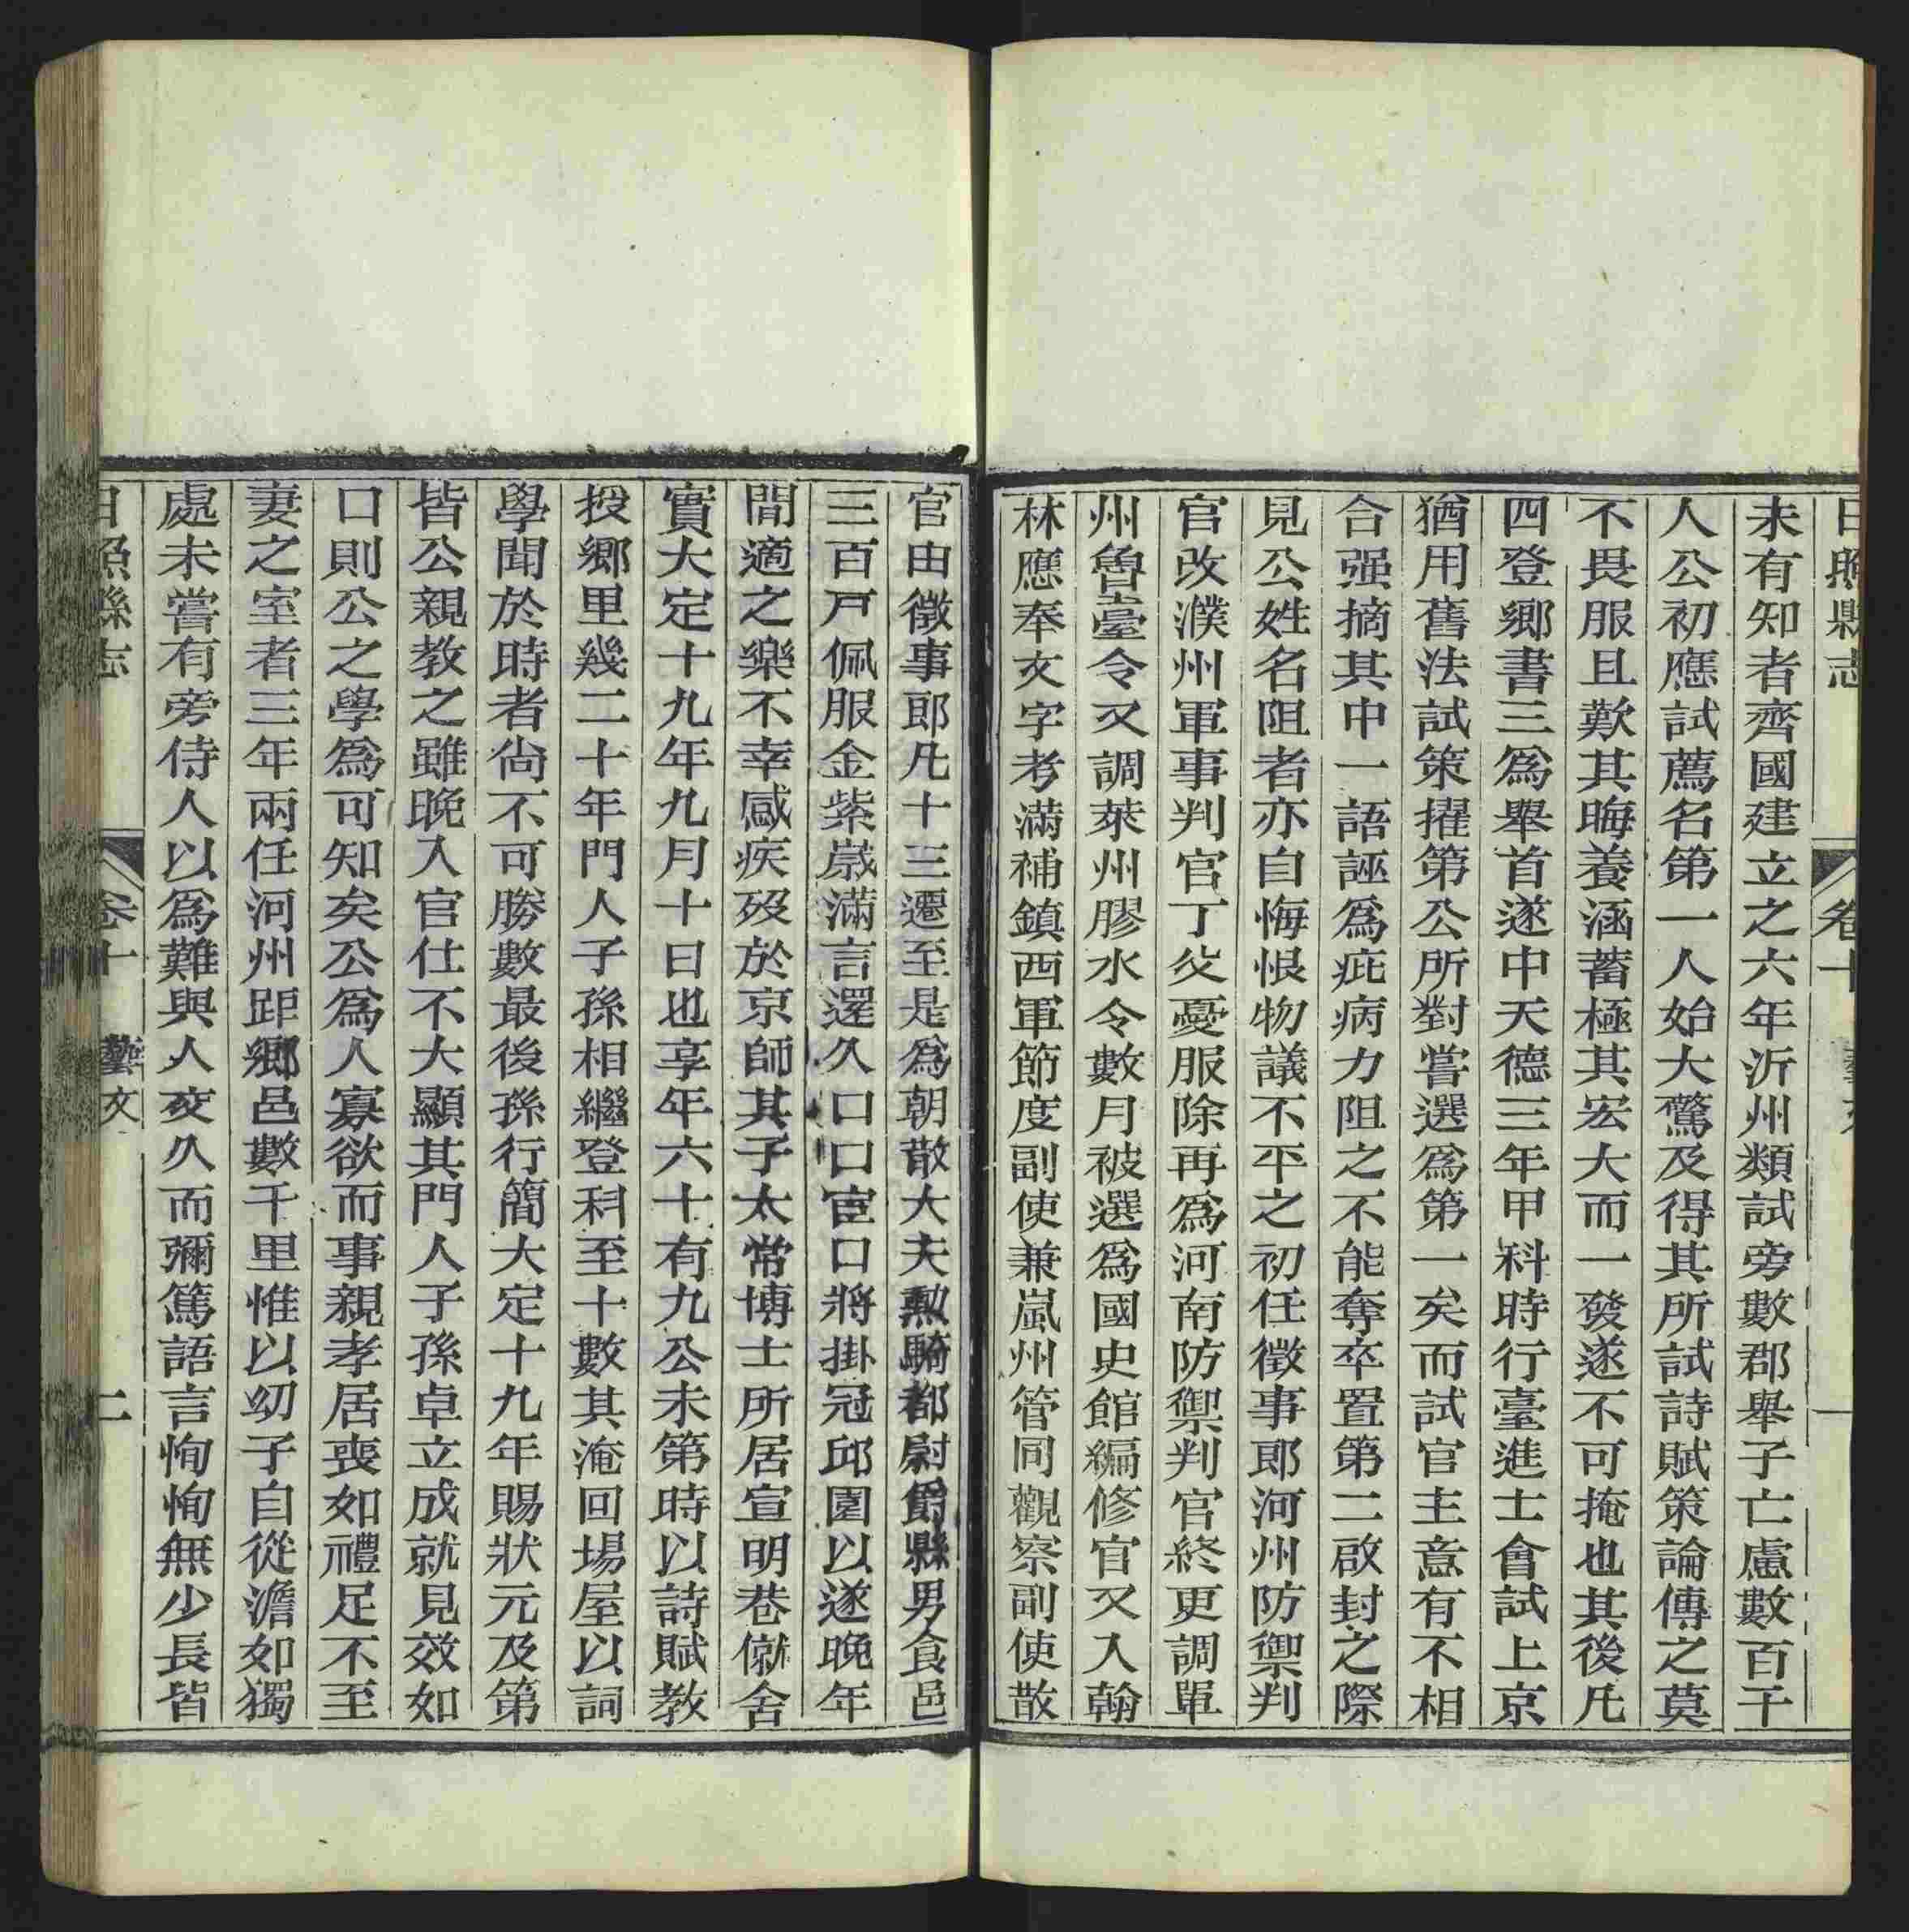 日照縣志 卷十 藝文 一
未有知者齊國建立之六年沂州類試旁數郡舉子亡慮數百千
人公初應試薦名第一人始大驚及得其所試詩賦策論傳之莫
不畏服且歎其晦養涵蓄極其宏大而一發遂不可掩也其後凡
四登鄉書三爲舉首遂中天德三年甲科時行臺進士會試上京
猶用舊法試策擢第公所對嘗選爲第一矣而試官主意有不相
合强摘其中一語誣爲疵病力阻之不能奪卒置第二啟封之際
見公姓名阻者亦自悔恨物議不平之初任徵事郎河州防禦判
官改濮州軍事判官丁父憂服除再爲河南防禦判官終更調單
州魯臺令又調萊州膠水令數月被選爲國史館編修官又入翰
林應奉文字考滿補鎮西軍節度副使兼嵐州管同觀察副使散
官由徵事郎凡十三遷至是爲朝散大夫勲騎都尉爵縣男食邑
三百戸佩服金紫嵗滿言還久口口宦口將掛冠邱園以遂晚年
閒適之樂不幸感疾歿於京師其子太常博士所居宣明巷僦舍
實大定十九年九月十日也享年六十有九公未第時以詩賦教
授鄉里幾二十年門人子孫相繼登科至十數其淹回場屋以詞
學聞於時者尙不可勝數最後孫行簡大定十九年賜狀元及第
皆公親教之雖晚入官仕不大顯其門人子孫卓立成就見效如
口則公之學爲可知矣公爲人寡欲而事親孝居喪如禮足不至
妻之室者三年兩任河州距鄉邑數千里惟以幼子自從澹如獨
處未嘗有旁侍人以爲難與人交久而彌篤語言恂恂無少長皆
日照縣志 卷十 藝文 二